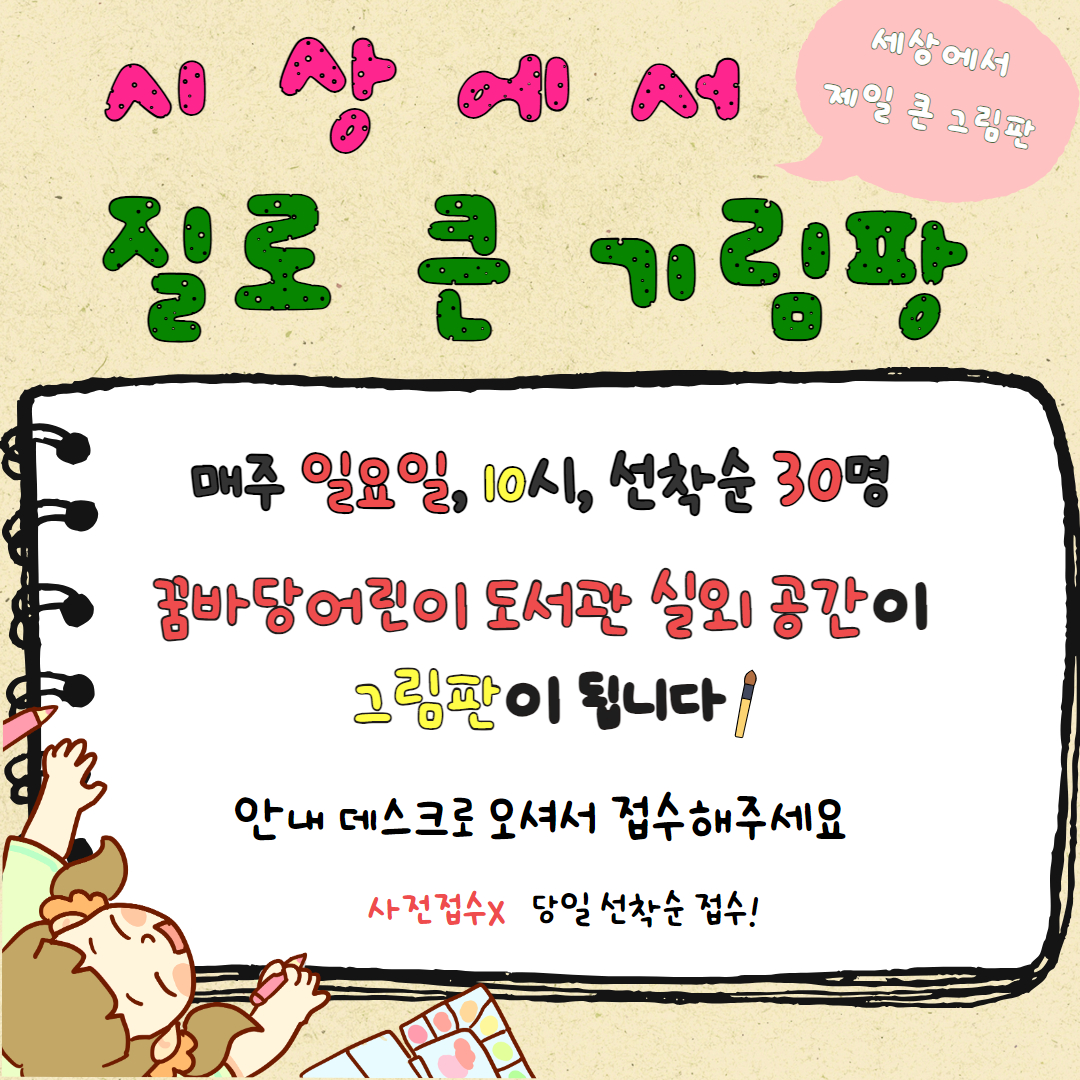 시상에서
질로 큰 기림팡
세상에서
제일 큰 그림판
매주 일요일, 10시, 선착순 30명
꿈바당어린이 도서관 실외 공간이
그림판이 됩니다
안내 데스크로 오셔서 접수해주세요
사전접수X 당일 선착순 접수!